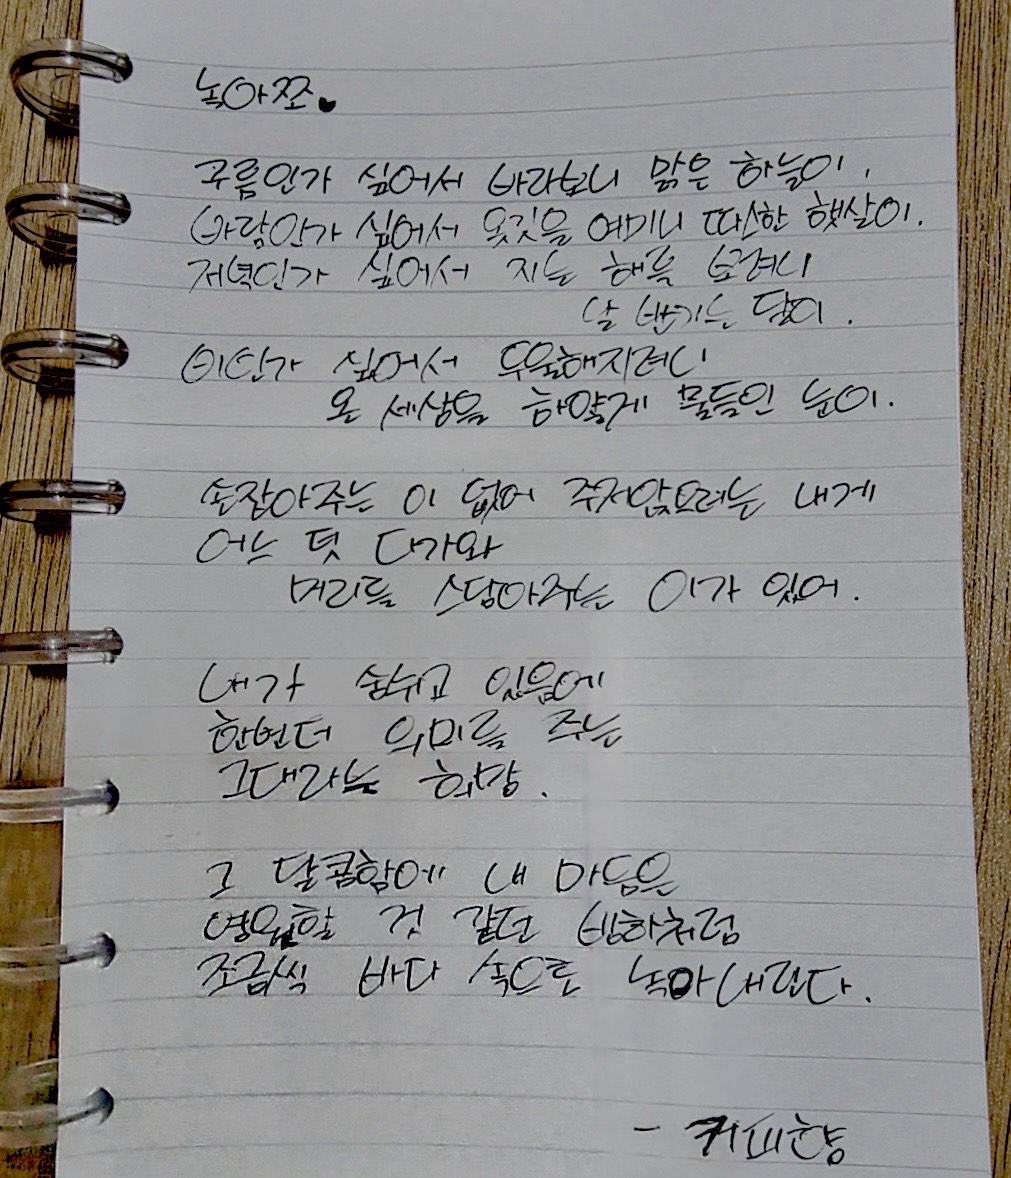 녹아쪼♥
구름인가 싶어서 바라보니 맑은 하늘이.
바람인가 싶어서 옷깃을 여미니 따스한 햇살이.
저녁인가 싶어서 지는 해를 보려니
날 반기는 달이.
비인가 싶어서 우울해지려니
온 세상을 하얗게 물들인 눈이.
손잡아주는 이 없어 주저앉으려는 내게
어느 덧 다가와
머리를 쓰담아주는 이가 있어.
내가 숨쉬고 있음에
한번더 의미를 주는
그대라는 희망.
그 달콤함에 내 마음은
영원할 것 같던 빙하처럼
조금씩 바다 속으로 녹아내린다.
- 커피한